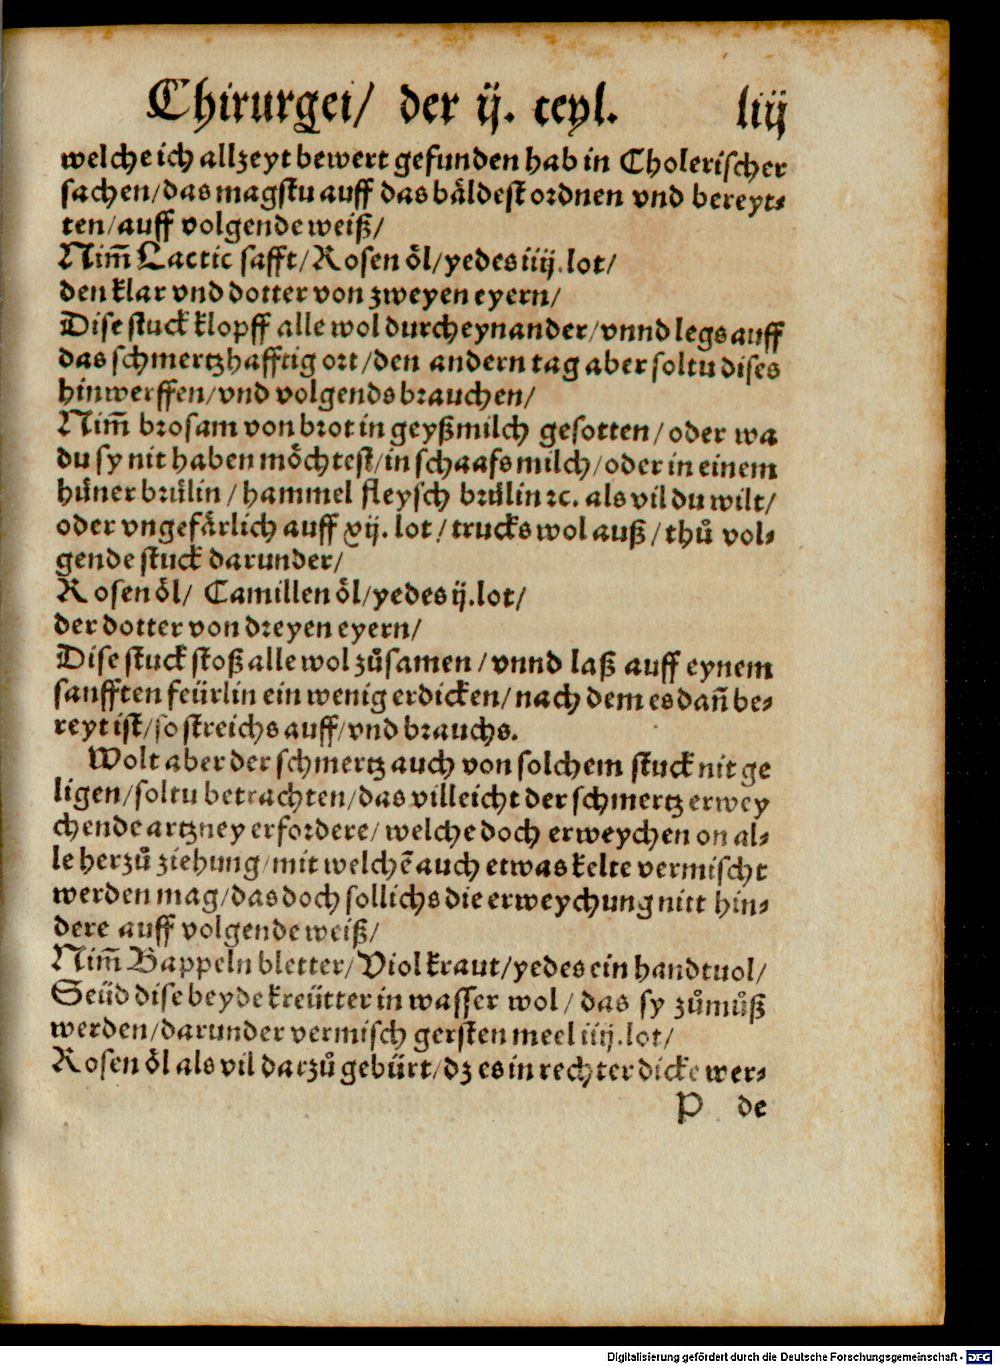 Chirurgei/ der ij. teyl. liij
welche ich allzeyt bewert gefunden hab in Cholerischer
sachen/das magstu auff das bäldest ordnen vnd bereyt⸗
ten/auff volgende weiß/
Nim̄ Lactic safft/Rosen öl/yedes iiij.lot/
den klar vnd dotter von zweyen eyern/
Dise stuck klopff alle wol durcheynander/vnnd legs auff
das schmertzhafftig ort/den andern tag aber soltu dises
hinwerffen/vnd volgends brauchen/
Nim̄ brosam von brot in geyßmilch gesotten/oder wa
du sy nit haben möchtest/in schaafs milch/oder in einem
hůner brůlin/hammel fleysch brůlin ꝛc. als vil du wilt/
oder vngefärlich auff xij. lot/trucks wol auß/thů vol⸗
gende stuck darunder/
Rosen öl/ Camillen öl/yedes ij.lot/
der dotter von dreyen eyern/
Dise stuck stoß alle wol zůsamen/vnnd laß auff eynem
saufften feürlin ein wenig erdicken/nach dem es dañ be⸗
reyt ist/so streichs auff/vnd brauchs.
Wolt aber der schmertz auch von solchem stuck nit ge
ligen/soltu betrachten/das villeicht der schmertz erwey
chende artzney erfordere/welche doch erweychen on al⸗
le herzů ziehung/mit welchē auch etwas kelte vermischt
werden mag/das doch sollichs die erweychung nitt hin⸗
dere auff volgende weiß/
Nim̄ Bappeln bletter/Violkraut/yedes ein handtuol/
Seüd dise beyde kreütter in wasser wol/das sy zůmůß
werden/darunder vermisch gersten meel iiij.lot/
Rosen öl als vil darzů gebürt/dz es in rechter dicke wer⸗
P de
Digitalisierung gefördert durch die Deutsche Forschungsgemeinschaft - DFG